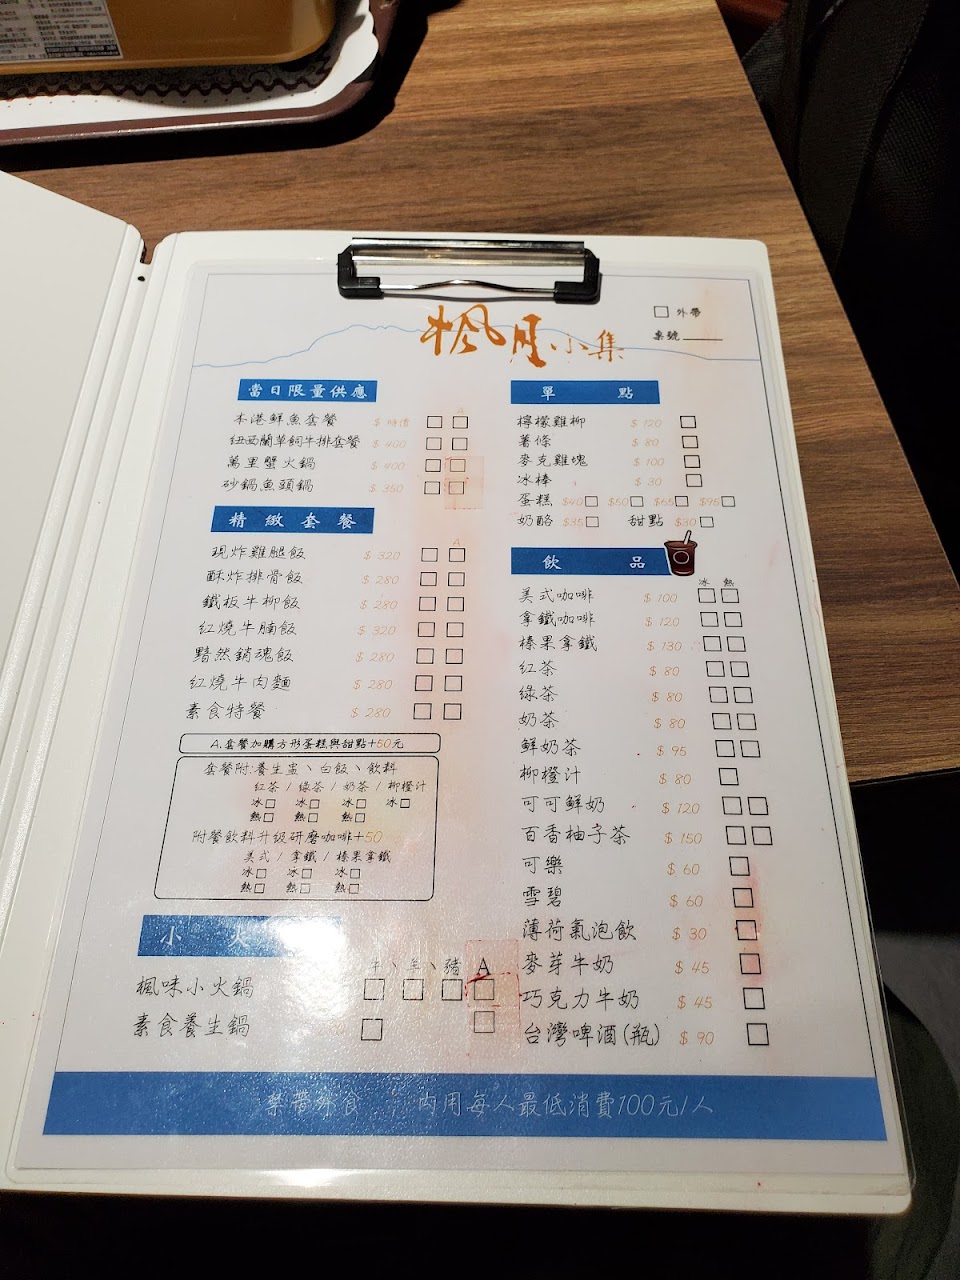 楓月小集
外帶
桌號
當日限量供應
A
本港鮮魚套餐 $ 時價
紐西蘭草飼牛排套餐 $ 400
萬里蟹火鍋 $ 400
砂鍋魚頭鍋 $ 350
精緻套餐
A
現炸雞腿飯 $ 320
酥炸排骨飯 $ 280
鐵板牛柳飯 $ 280
紅燒牛腩飯 $ 320
黯然銷魂飯 $ 280
紅燒牛肉麵 $ 280
素食特餐 $ 280
A.套餐加購方形蛋糕與甜點+50元
套餐附:養生盅、白飯、飲料
紅茶 / 綠茶 / 奶茶 / 柳橙汁
冰 冰 冰 冰
熱 熱 熱
附餐飲料升級研磨咖啡+50
美式 / 拿鐵 / 榛果拿鐵
冰 冰 冰
熱 熱 熱
小火
牛、羊、豬 A
楓味小火鍋
素食養生鍋
單點
檸檬雞柳 $ 120
薯條 $ 80
麥克雞塊 $ 100
冰棒 $ 30
蛋糕 $40 $50 $65 $95
奶酪 $35 甜點 $30
飲品
冰 熱
美式咖啡 $ 100
拿鐵咖啡 $ 120
榛果拿鐵 $ 130
紅茶 $ 80
綠茶 $ 80
奶茶 $ 80
鮮奶茶 $ 95
柳橙汁 $ 80
可可鮮奶 $ 120
百香柚子茶 $ 150
可樂 $ 60
雪碧 $ 60
薄荷氣泡飲 $ 30
麥芽牛奶 $ 45
巧克力牛奶 $ 45
台灣啤酒(瓶) $ 90
禁帶外食 內用每人最低消費100元/人